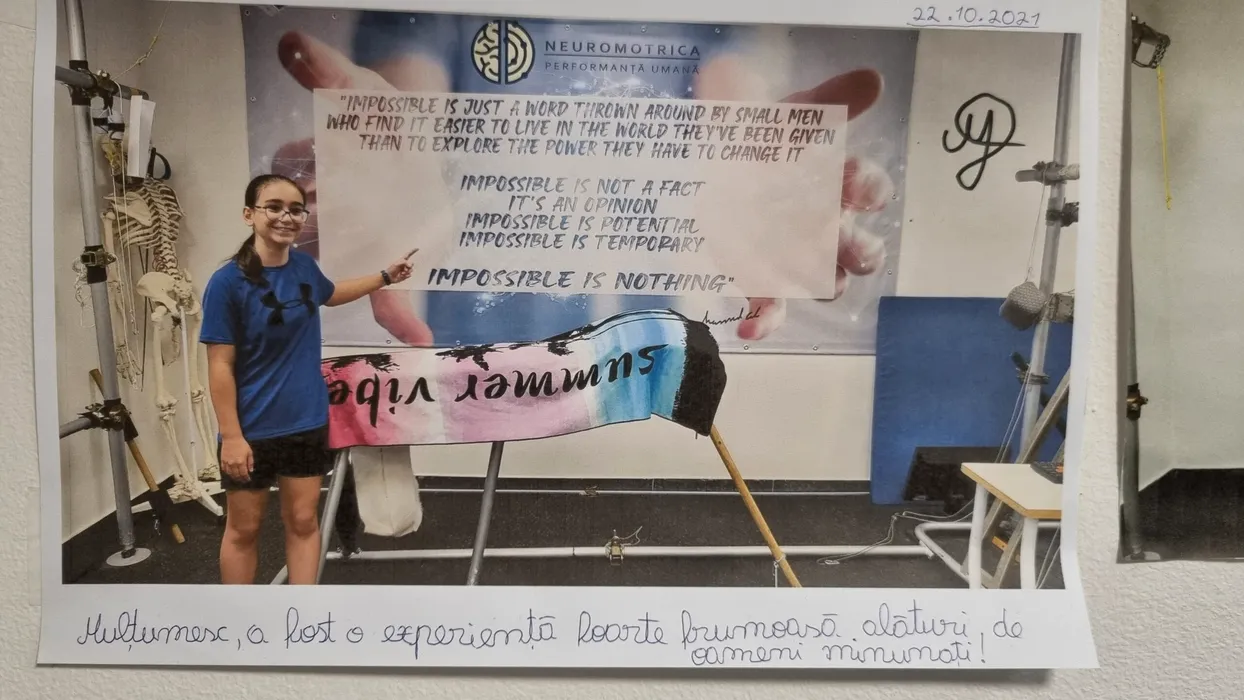 22.10.2021
NEUROMOTRICA
PERFORMANȚĂ UMANĂ
"IMPOSSIBLE IS JUST A WORD THROWN AROUND BY SMALL MEN
WHO FIND IT EASIER TO LIVE IN THE WORLD THEY'VE BEEN GIVEN
THAN TO EXPLORE THE POWER THEY HAVE TO CHANGE IT
IMPOSSIBLE IS NOT A FACT
IT'S AN OPINION
IMPOSSIBLE IS POTENTIAL
IMPOSSIBLE IS TEMPORARY
IMPOSSIBLE IS NOTHING"
summer vibe
Mulțumesc, a fost o experiență foarte frumoasă alături, de
oameni minunați!